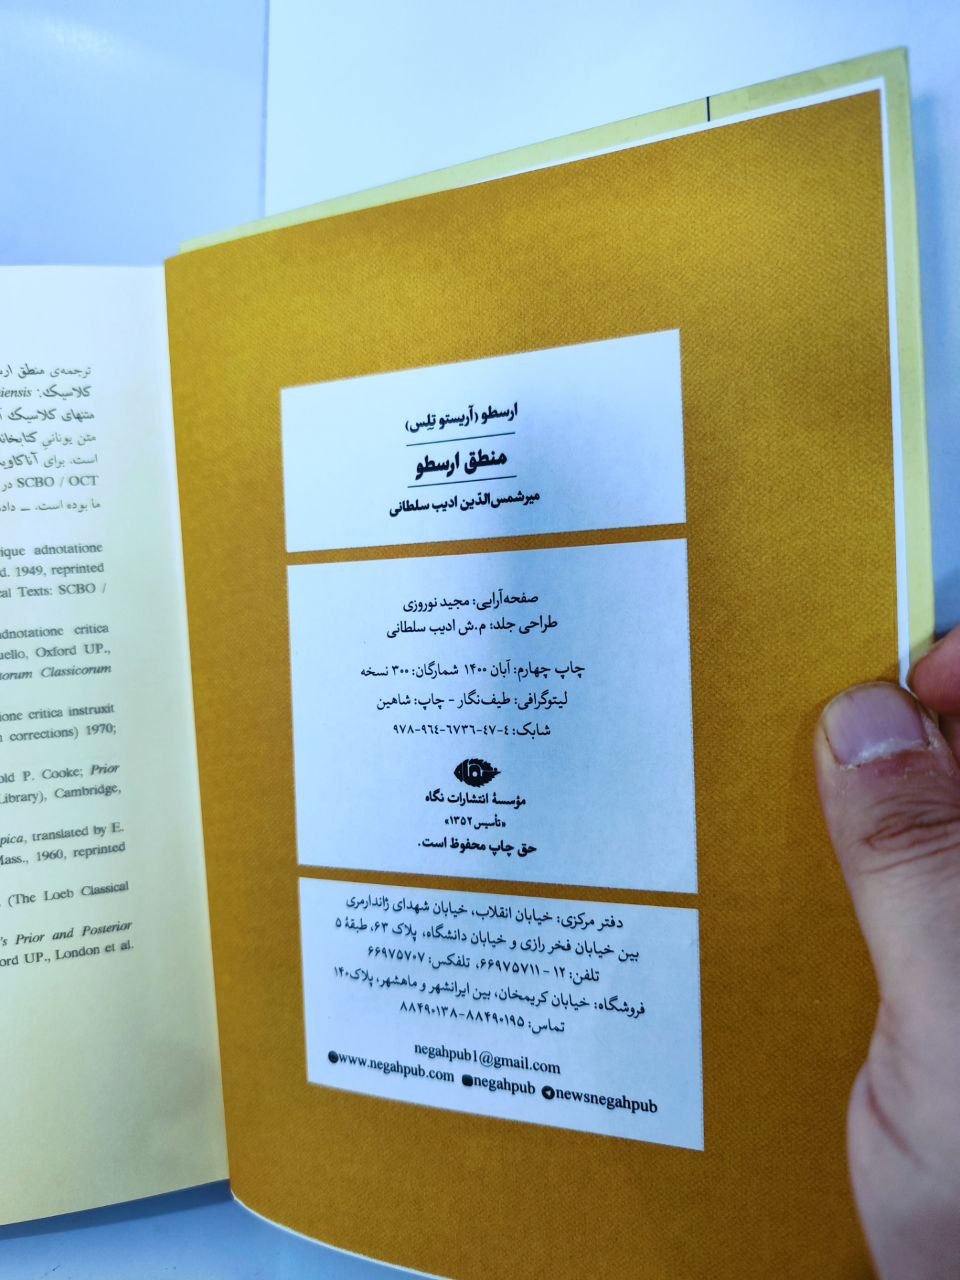 ارسطو (آریستو تِلِس)
منطق ارسطو
میرشمس‌الدّین ادیب سلطانی
صفحه‌آرایی: مجید نوروزی
طراحی جلد: م.ش ادیب سلطانی
چاپ چهارم: آبان ۱۴۰۰ شمارگان: ۳۰۰ نسخه
لیتوگرافی: طیف‌نگار - چاپ: شاهین
شابک: ۴-۴۷-۶۷۳۶-۹۶۴-۹۷۸
مؤسسهٔ انتشارات نگاه
«تأسیس ۱۳۵۲»
حق چاپ محفوظ است.
دفتر مرکزی: خیابان انقلاب، خیابان شهدای ژاندارمری
بین خیابان فخر رازی و خیابان دانشگاه، پلاک ۶۳، طبقهٔ ۵
تلفن: ۱۲ - ۶۶۹۷۵۷۱۱، تلفکس: ۶۶۹۷۵۷۰۷
فروشگاه: خیابان کریمخان، بین ایرانشهر و ماهشهر، پلاک۱۴۰
تماس: ۸۸۴۹۰۱۹۵-۸۸۴۹۰۱۳۸
negahpub1@gmail.com
www.negahpub.com negahpub newsnegahpub
ترجمه‌ی منطق
کلاسیک: iensis
متنهای کلاسیک
متن یونانیِ
است. برای
SCBO / OCT در
ما بوده است. ــ
ique adnotatione
d. 1949, reprinted
al Texts: SCBO /
adnotatione critica
uello, Oxford UP.,
torum Classicorum
ione critica instruxit
n corrections) 1970;
old P. Cooke; Prior
Library), Cambridge,
pica, translated by E.
Mass., 1960, reprinted
(The Loeb Classical
's Prior and Posterior
ord UP., London et al.